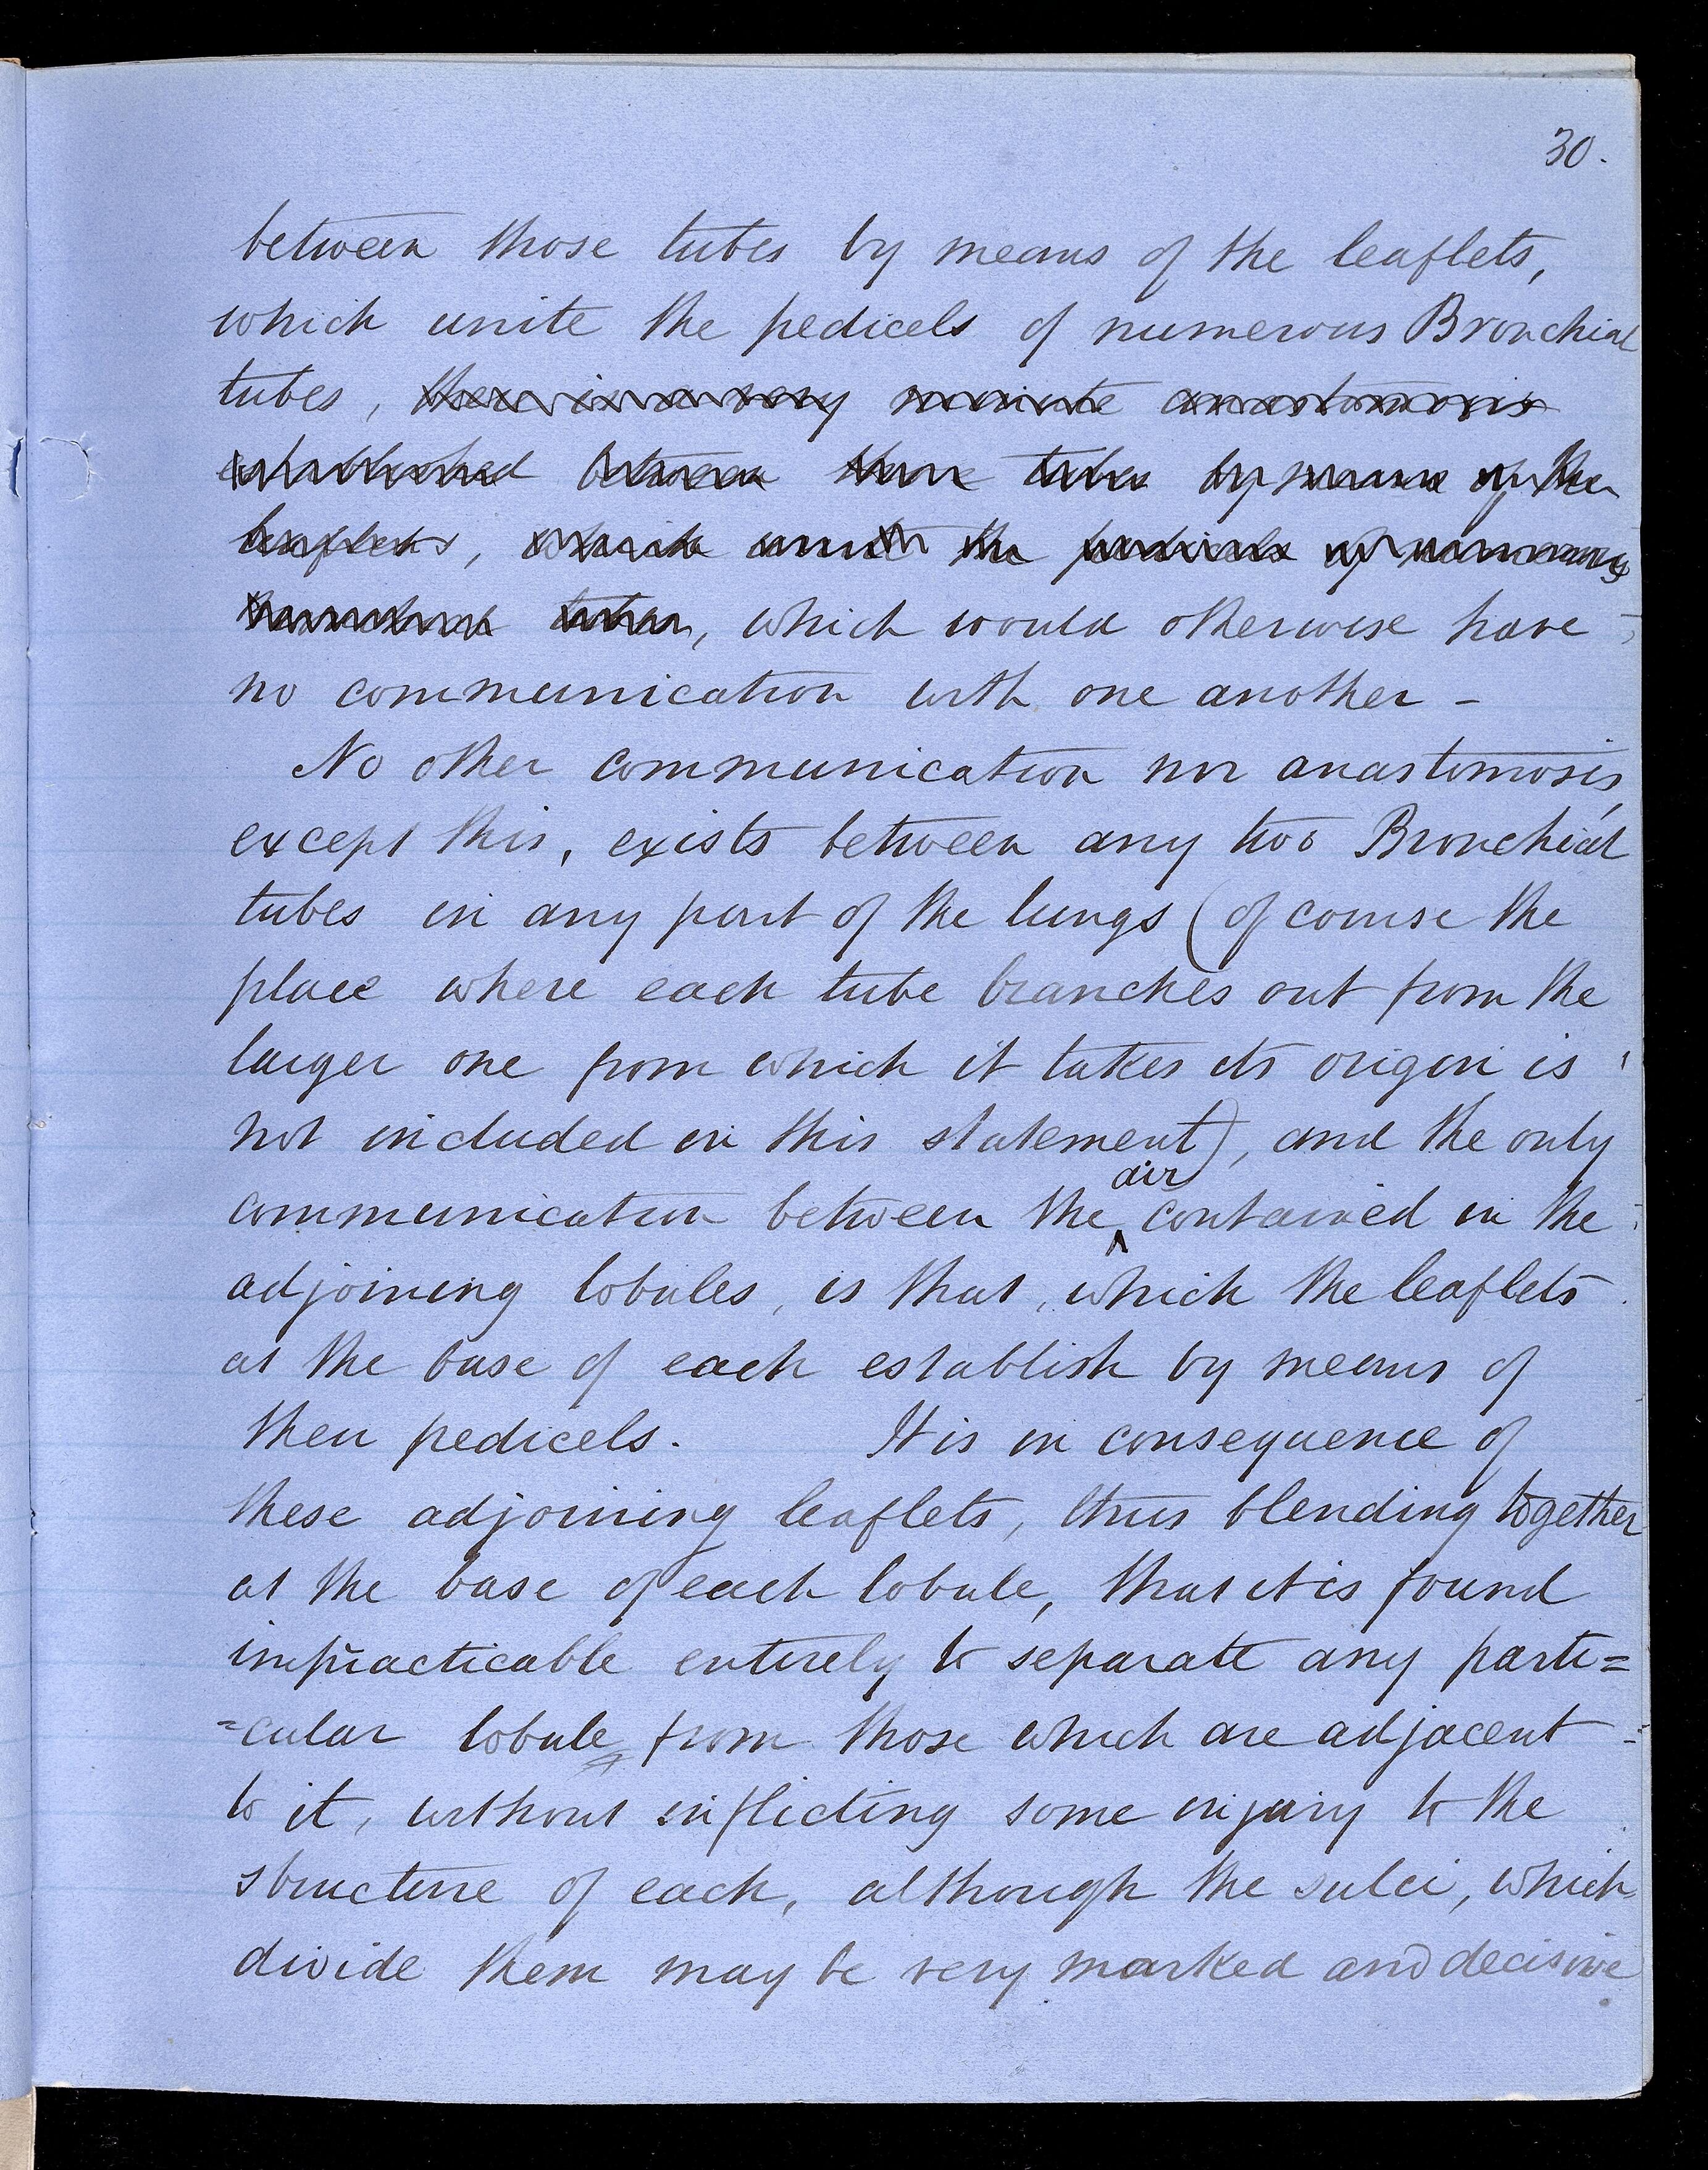 30.
between those tubes by means of the leaflets,
which unite the pedicels of numerous Bronchial
tubes, there is a very minute anastomosis
established between these tubes by means of the
leaflets, which unite the pedicels of numerous
bronchial tubes, which would otherwise have
no communication with one another -
No other communication nor anastomosis,
except this, exists between any two Bronchial
tubes in any part of the lungs (of course the
place where each tube branches out from the
larger one from which it takes its origin is
not included in this statement), and the only
air
communication between the contained in the
adjoining lobules, is that, which the leaflets
at the base of each establish by means of
their pedicels. It is in consequence of
these adjoining leaflets, thus blending together
at the base of each lobule, that it is found
impracticable entirely to separate any parti=
=cular lobule from those which are adjacent
to it, without inflicting some injury to the
structure of each, although the sulci, which
divide them may be very marked and decisive